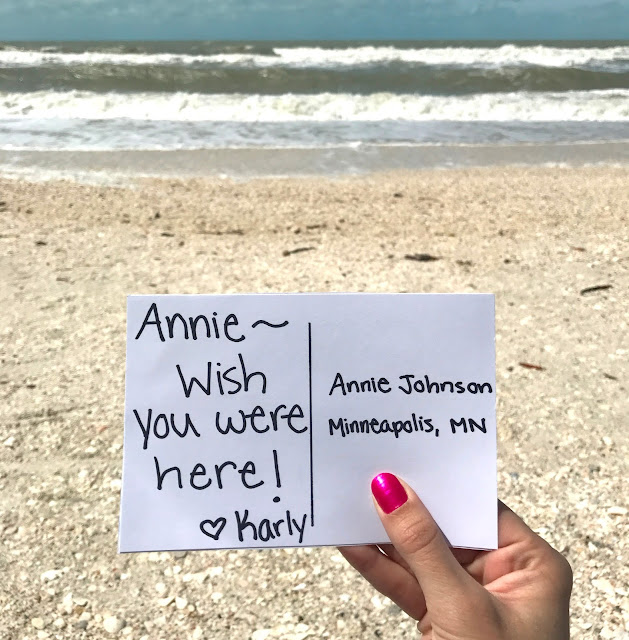 Annie~
Wish
you were
here!
♡ Karly
Annie Johnson
Minneapolis, MN